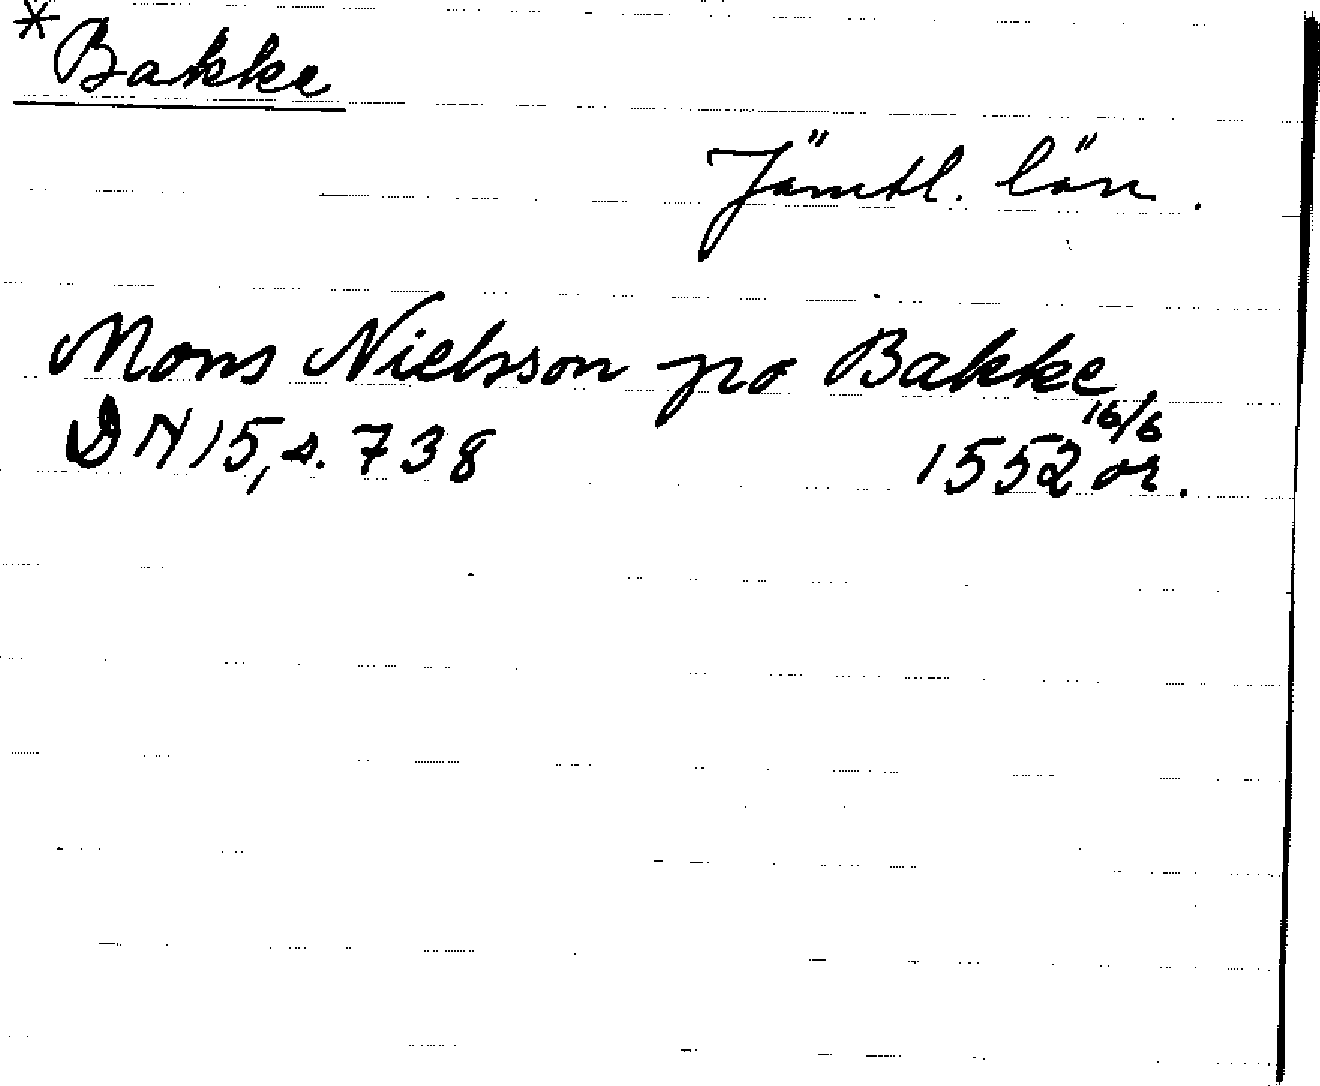 *Bakke
Jämtl. län.
Mons Nielsson po Bakke
DN 15, s. 738 1552 16/6 or.